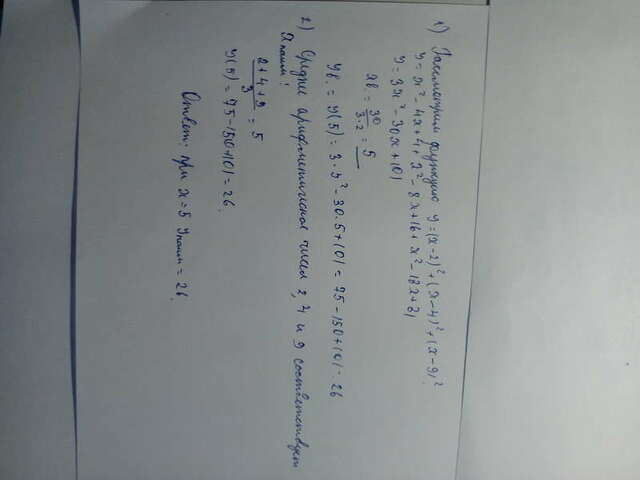 1) Рассмотрим функцию y=(x-2)²+(x-4)²+(x-9)².
y=x²-4x+4+x²-8x+16+x²-18x+81
y=3x²-30x+101
xв.=30/3·2=5
yв.=y(5)=3·5²-30·5+101=75-150+101=26
2) Среднее арифметическое чисел 2, 4 и 9 соответствует
xнаим!
2+4+9/3=5
y(5)=75-150+101=26.
Ответ: при x=5 yнаим=26.